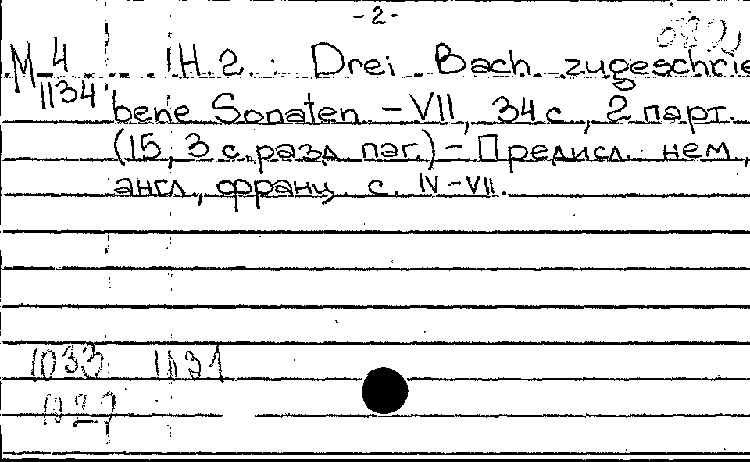 -2-
М 4 IH. 2. Drei Bach zugeschrie
1134 bene Sonaten - VII, 34 с, 2 парт.
(15, 3 с. разд. паг.) - Предисл. нем,
англ, франц. с. IV-VII.
1033 1131